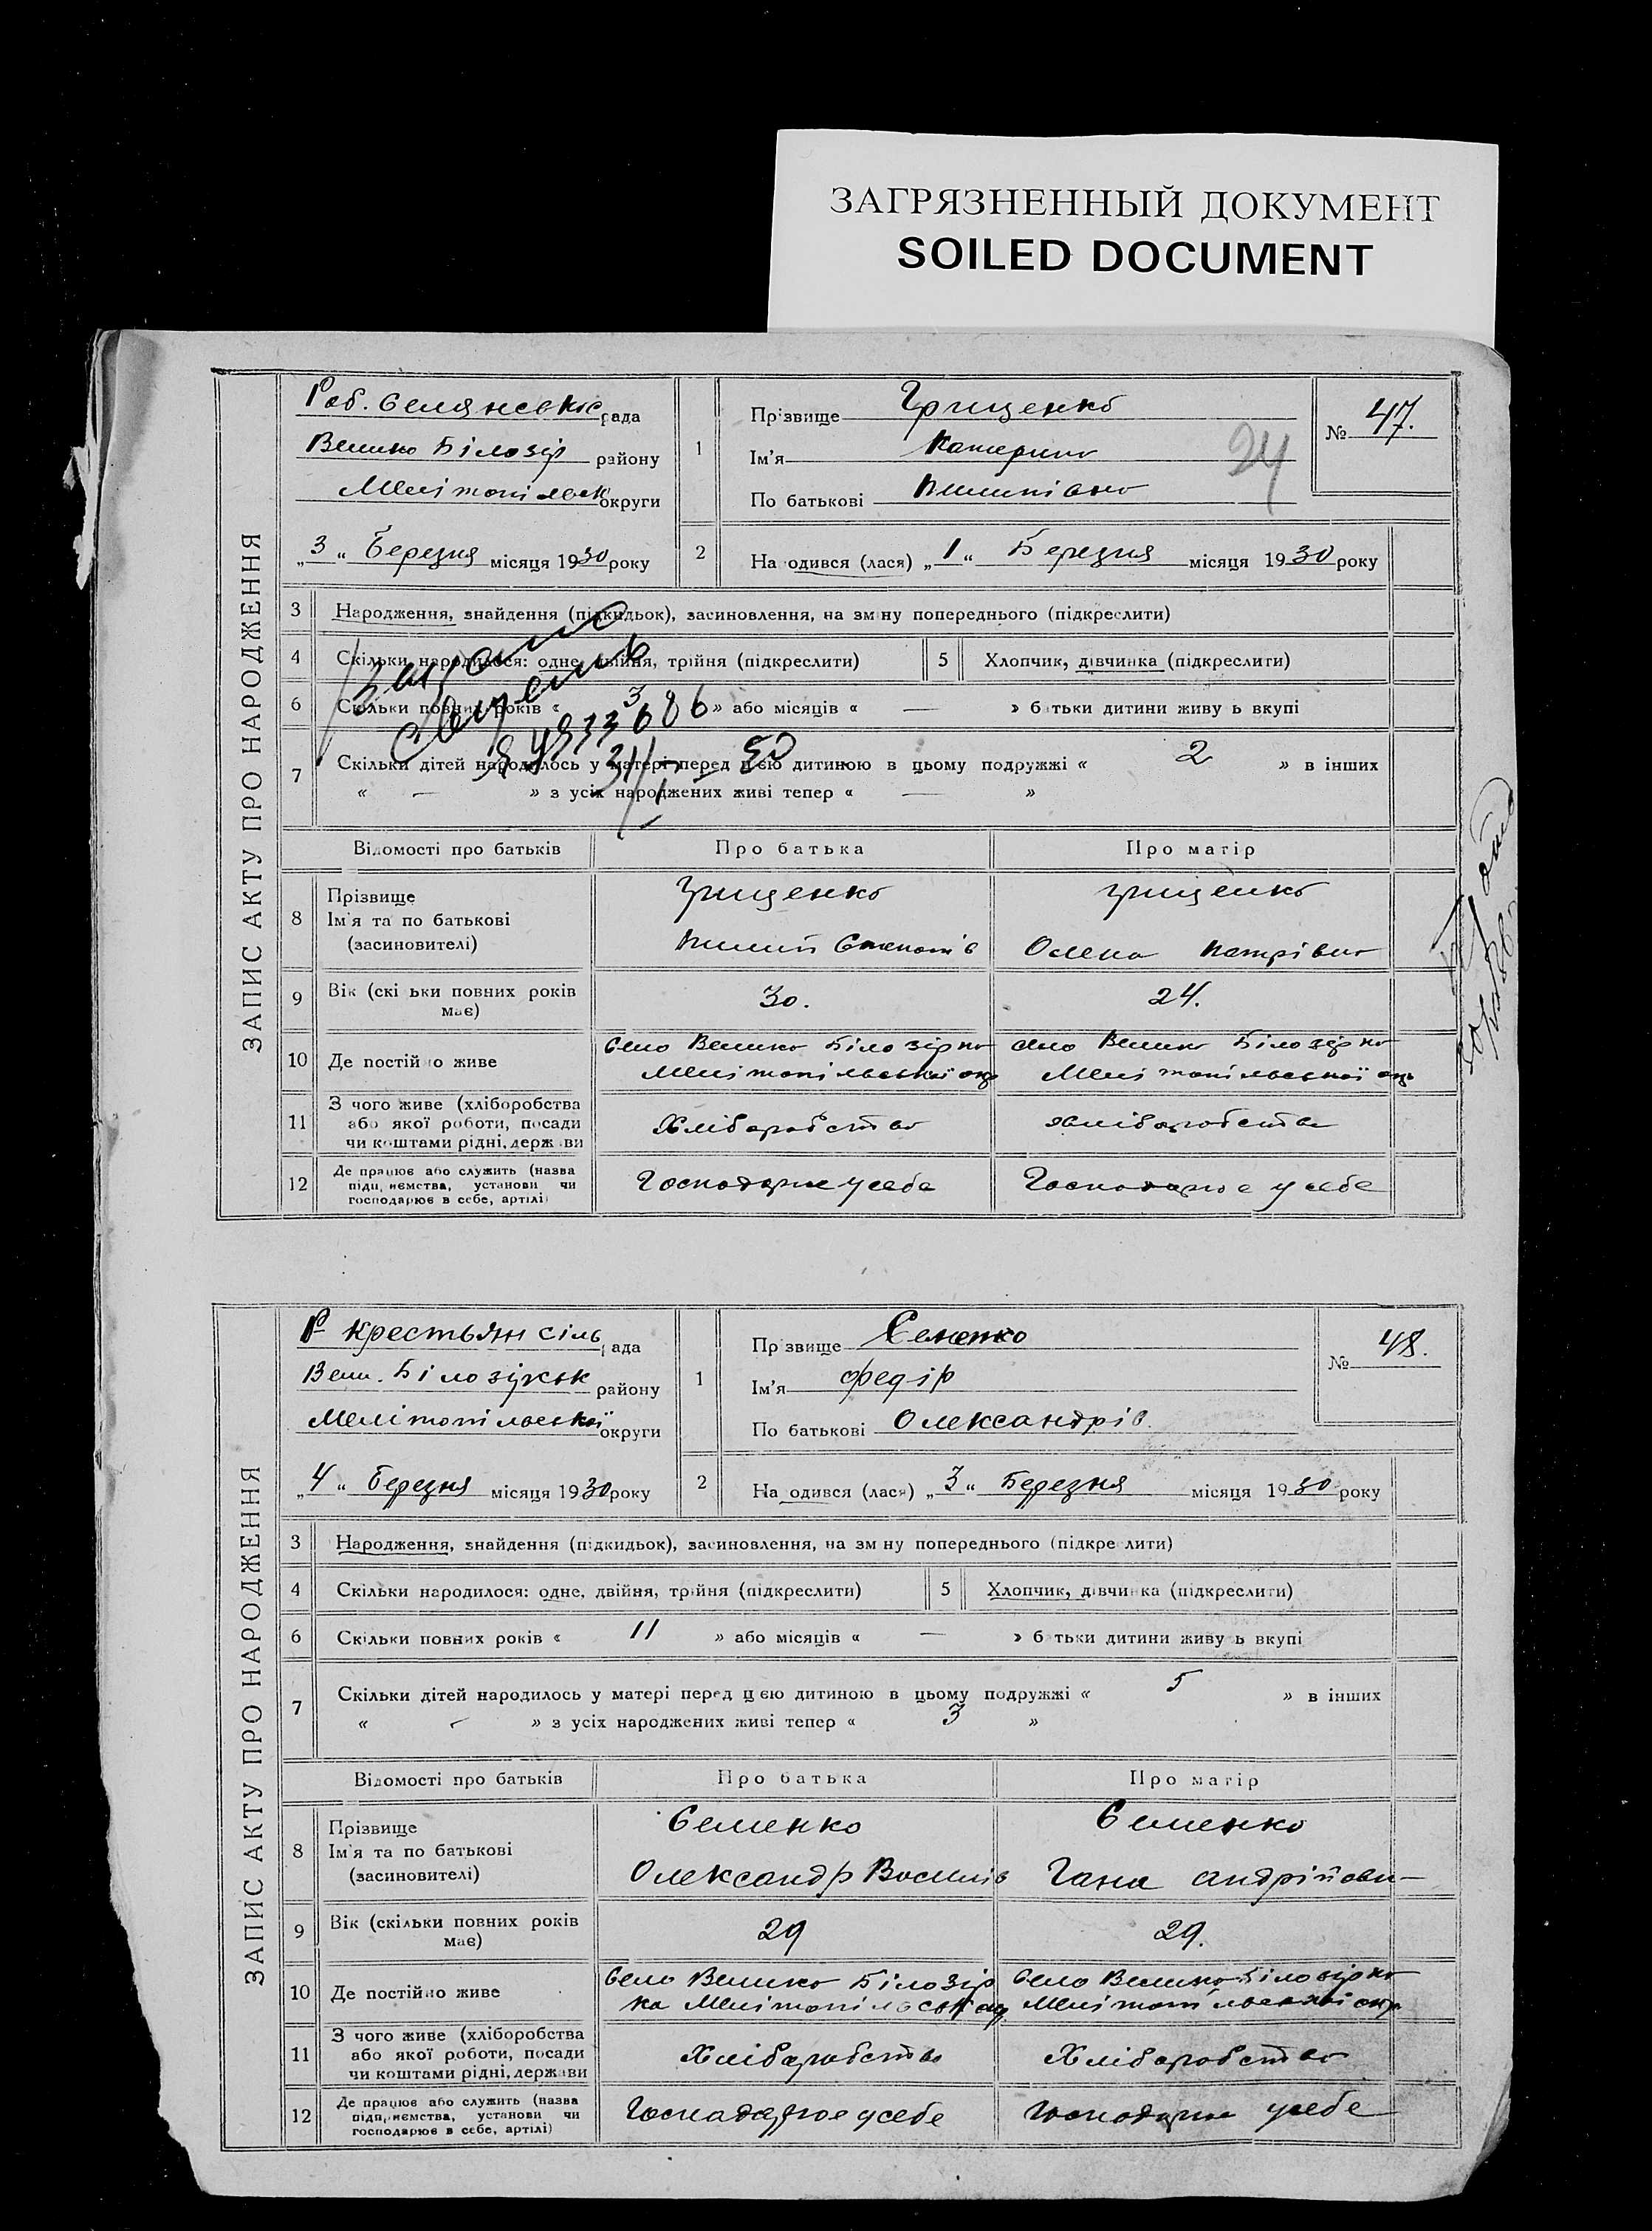 ЗАГРЯЗНЕННЫЙ ДОКУМЕНТ
SOILED DOCUMENT
ЗАПИС АКТУ ПРО НАРОДЖЕННЯ
Роб. селянське рада
Велико Білозір району
Мелітопільськ округи
„3“ Березня місяця 1930 року
1
Прізвище Грищенко
Ім'я Катерина
По батькові Пилипівна
24
№ 47.
2 На одився (лася) „1“ Березня місяця 1930 року
3 Народження, знайдення (підкидьок), засиновлення, на зм ну попереднього (підкреслити)
4 Скільки народилося: одне, двійня, трійня (підкреслити) 5 Хлопчик, дівчинка (підкреслити)
6 Скільки повних років « 3 » або місяців « — » батьки дитини живу ь вкупі
7 Скільки дітей народилось у матері перед цією дитиною в цьому подружжі « 2 » в інших
« — » з усіх народжених живі тепер « — »
Відомості про батьків Про батька Про матір
8 Прізвище
Ім'я та по батькові
(засиновителі)
Грищенко Грищенко
Пилип Степанів Олена Петрівна
9 Вік (скі ьки повних років має) 30. 24.
10 Де постійно живе
село Велико Білозірка село Велико Білозірка
Мелітопільської окр Мелітопільської окр
11 З чого живе (хліборобства
або якої роботи, посади
чи коштами рідні, держави
Хліборобство хліборобство
12 Де працює або служить (назва
підприємства, установи чи
господарює в себе, артілі)
Господарює у себе Господарює у себе
ЗАПИС АКТУ ПРО НАРОДЖЕННЯ
Р крестьян сіль рада
Вели. Білозірськ району
Мелітопільської округи
„4“ Березня місяця 1930 року
1
Прізвище Семенко
Ім'я Федір
По батькові Олександрів.
№ 48.
2 На одився (лася) „3“ Березня місяця 1930 року
3 Народження, знайдення (підкидьок), засиновлення, на зм ну попереднього (підкре лити)
4 Скільки народилося: одне, двійня, трійня (підкреслити) 5 Хлопчик, дівчинка (підкреслити)
6 Скільки повних років « 11 » або місяців « — » б тьки дитини живу ь вкупі
7 Скільки дітей народилось у матері перед цією дитиною в цьому подружжі « 5 » в інших
« — » з усіх народжених живі тепер « 3 »
Відомості про батьків Про батька Про матір
8 Прізвище
Ім'я та по батькові
(засиновителі)
Семенко Семенко
Олександр Василів Гана Андрійовн
9 Вік (скільки повних років має) 29 29.
10 Де постійно живе
село Велико Білозір село Велико Білозірка
ка Мелітопільськ окр Мелітопільської окр
11 З чого живе (хліборобства
або якої роботи, посади
чи коштами рідні, держави
Хліборобство Хліборобство
12 Де працює або служить (назва
підприємства, установи чи
господарює в себе, артілі)
Господарює у себе Господарює у себе